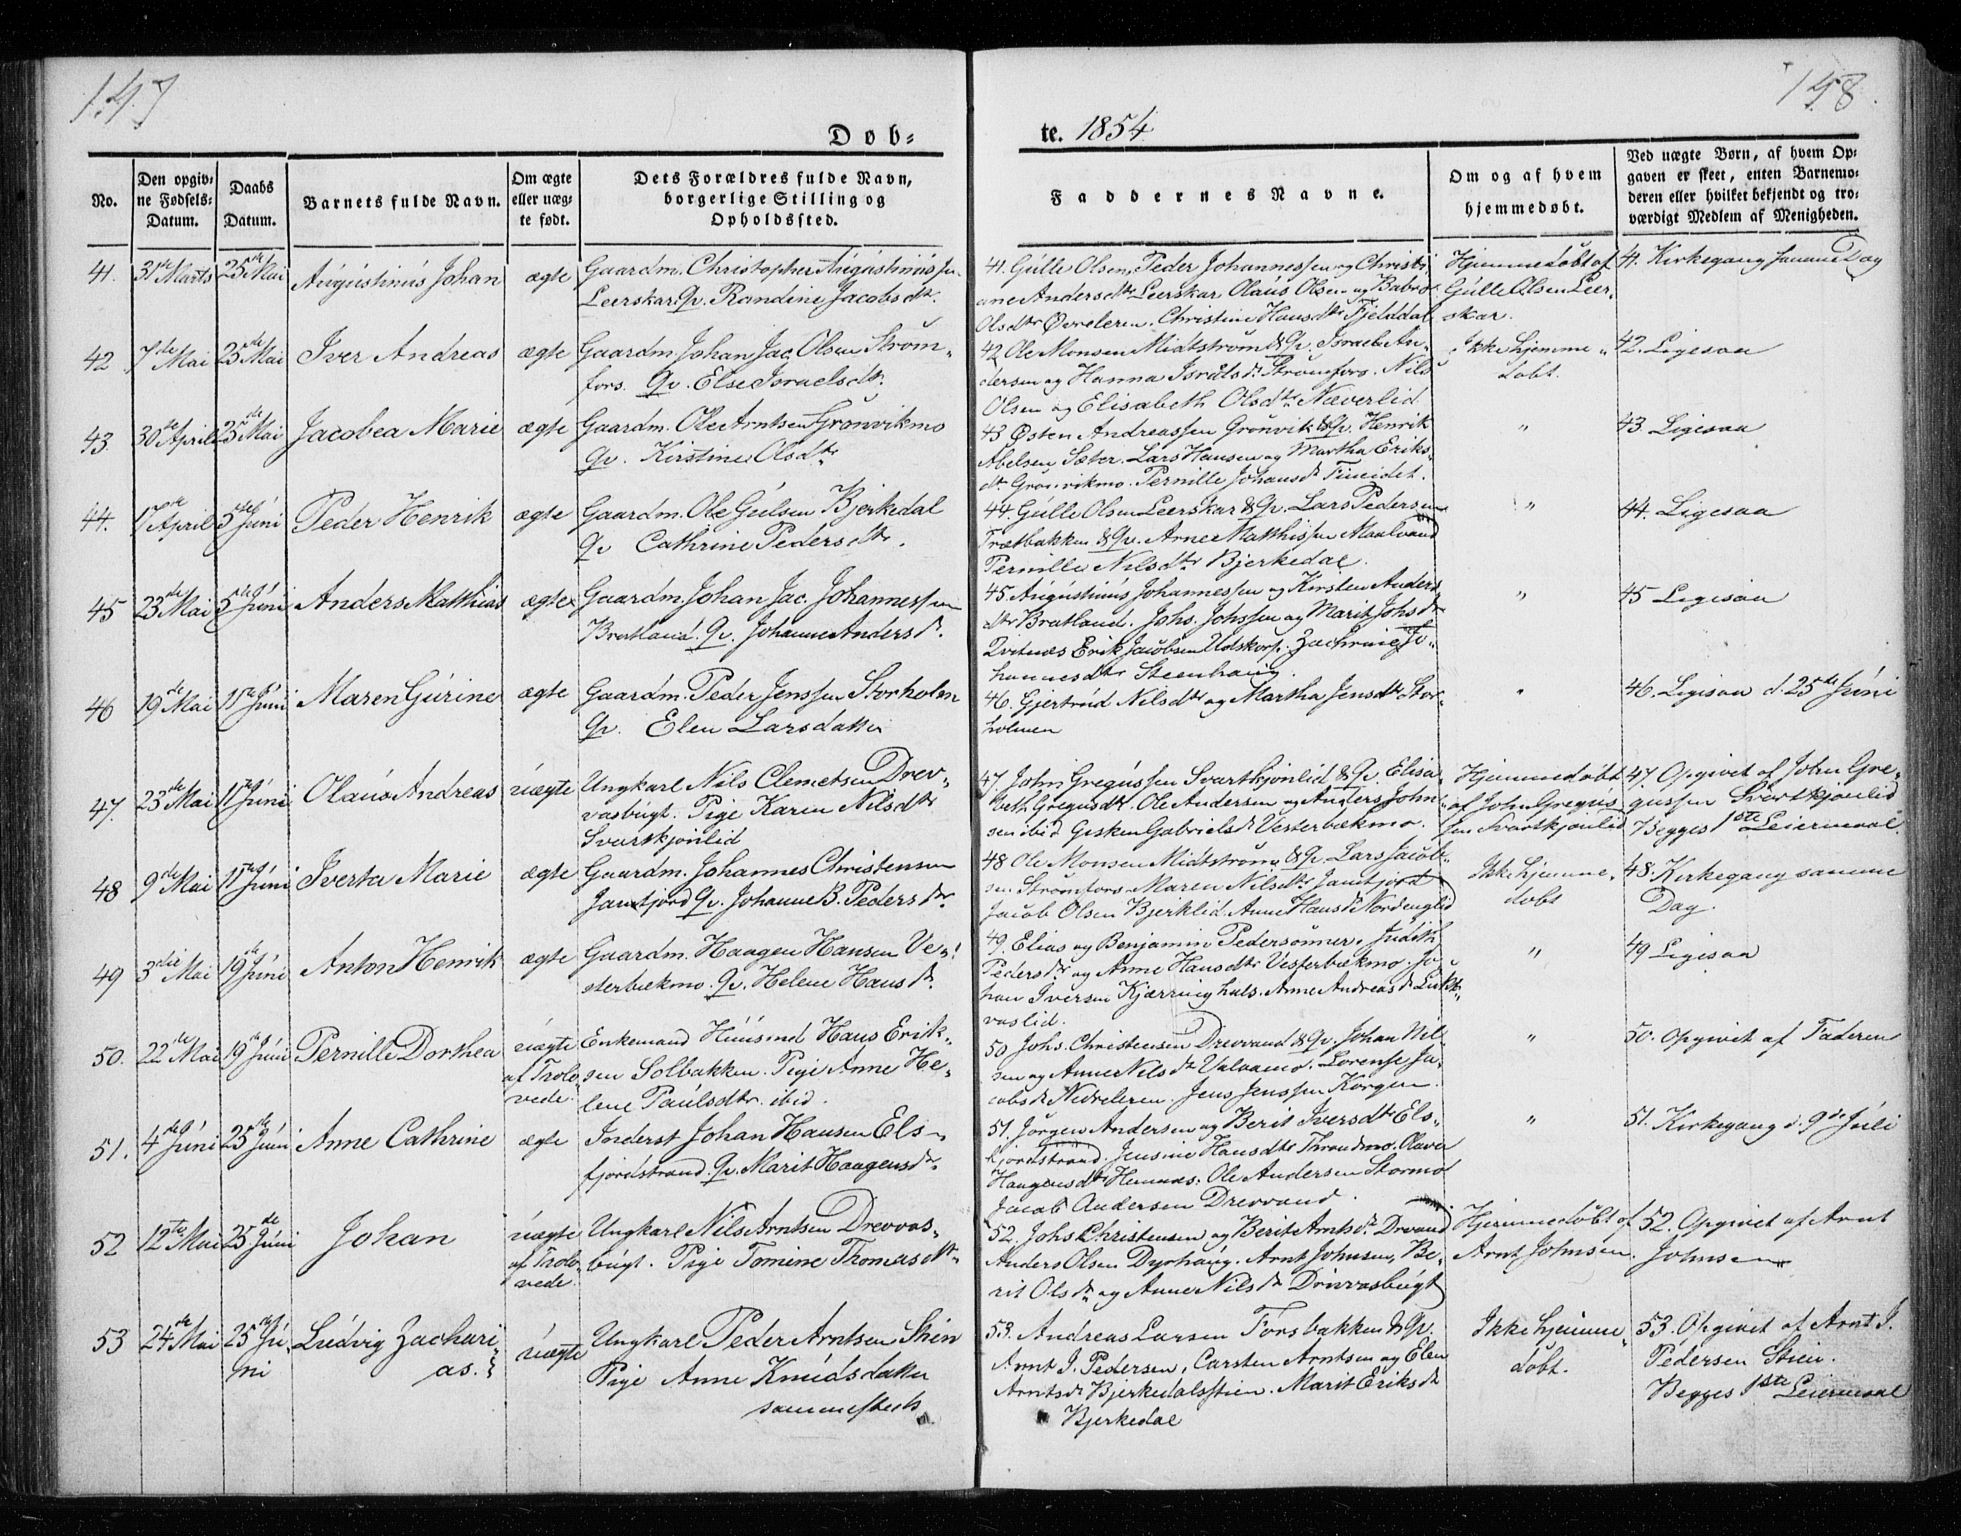 147
148.
Døb-
te. 1854.
No.
Den opgiv-
ne Fødsels-
Datum.
Daabs
Datum.
Barnets fulde Navn.
Om ægte
eller uæg-
te født.
Dets Forældres fulde Navn,
borgerlige Stilling og
Opholdssted.
Faddernes Navne.
Om og af hvem
hjemmedøbt.
Ved uægte Børn, af hvem Op-
gaven er skeet, enten Barnemo-
deren eller hvilket bekjendt og tro-
værdigt Medlem af Menigheden.
41. 31te Marts 25de Mai Augustinus Johan ægte Gaardm. Christopher Augustinussen
Leerskar Qv. Randine Jacobsdtr.
41. Gulle Olsen, Peder Johannessen og Christi-
ane Andersdtr Leerskar Olaus Olsen og
Olsdtr Øvreleren. Christine Hansdtr Fjelddal
Hjemmedøbt af
Gulle Olsen Leer-
skar.
41. Kirkegang samme Dag
42 7de Mai 25de Mai Iver Andreas ægte Gaardm. Johan Jac. Olsen Strøm-
fors. Qv. Else Israelsdtr.
42 Ole Monsen Midtstrøm & Qv. Israel An-
dersen og Hanna Isralsdr Strømfors. Nils
Olsen og Elisabeth Olsdtr Næverlid
Ikke hjemme-
døbt.
42. Ligesaa
43. 30te April 25de Mai Jacobea Marie ægte Gaardm. Ole Arntsen Grønvikmo
Qv. Kirstine Olsdtr
43 Østen Andreassen Grønvik & Qv. Henrik
Abelsen Sæter. Lars Hansen og Martha Eriks-
dtr Grønvikmo. Pernille Johansdr Fineidet.
"
43. Ligesaa
44. 17de April 5te Juni Peder Henrik ægte Gaardm. Ole Gulsen Bjerkedal
Qv Cathrine Pedersdtr.
44 Gulle Olsen Leerskar & Qv. Lars Pedersen
Trætbakken & Qv. Arne Matthissen Maalvand
Pernille Nilsdtr Bjerkedal.
"
44. Ligesaa
45 23de Mai 5te Juni Anders Matthias ægte Gaardm. Johan Jac. Johannessen
Bratland. Qv. Johanne Andersdr.
45. Augustinus Johannessen og Kirsten Anders
dtr Bratland. Johs. Johssen og Marit Johsdr
Qvitnæs Erik Jacobsen Utskorp. Zachrine Jo-
hannesdtr Steenhaug.
"
45 Ligesaa
46 19de Mai 11te Juni Maren Gurine ægte Gaardm. Peder Jenssen Storholm
Qv. Elen Larsdatter
46. Gjertrud Nilsdtr og Martha Jensdtr Stor-
holmen
"
46. Ligesaa d. 25de Juni
47. 23de Mai 11te Juni Olaus Andreas uægte Ungkarl Nils Clemetsen Drev-
vasbugt. Pige Karen Nilsdtr
Svartskjønlid
47 John Gregussen Svartskjønlid & Qv. Elisa-
beth Gregusdtr. Ole Andersen og Anders John-
sen ibid Gisken Gabrielsdr Vesterbækmo.
Hjemmedøbt
af John Gregus-
sen Svartskjønlid
47. Opgivet af John Gre-
gussen Svartskjønlid
Begges 1ste Leiermaal
48 9de Mai 11te Juni Iverta Marie ægte Gaardm. Johannes Christensen
Jamtjord Qv. Johanne B. Pedersdr.
48 Ole Monsen Midtstrøm & Qv Lars Jacob-
sen Strømfors. Maren Nilsdtr Jamtjord
Jacob Olsen Bjerklid Anne Hansdr Nordenglid
Ikke hjemme-
døbt
48. Kirkegang samme
Dag.
49 3die Mai 19de Juni Anton Henrik ægte Gaardm. Haagen Hansen Ve-
sterbækmo. Qv. Helene Hansdr.
49. Elias og Benjamin Pedersønner, Judith
Pedersdtr og Anne Hansdtr Vesterbækmo. Jo-
han Iversen Kjærringhals. Anne Andreasdr
vaslid.
"
49 Ligesaa
50. 22de Mai 19de Juni Pernille Dorthea uægte
af Trolo-
vede.
Enkemand Huusmd Hans Erik-
sen Solbakken. Pige Anne He-
lene Paulsdtr. ibid.
50. Johs. Christensen Drevvand & Qv. Johan Nil-
sen og Anne Nilsdr Valaamo. Lorense Ja-
cobsdr Nedreleren. Jens Jenssen Korgen.
"
50. Opgivet af Faderen
51. 4de Juni 25de Juni Anne Cathrine ægte Inderst Johan Hansen Els-
fjordstrand. Qv. Marit Haagensdr.
51. Jørgen Andersen og Berit Iversdtr Els-
fjordstrand. Jensine Hansdtr Thraudmo. Olava
Haagensdtr Hemnæs. Ole Andersen Stormo
Jacob Andersen Drevvand.
"
51. Kirkegang d. 9de Juli
52 12te Mai 25de Juni Johan uægte
af Trolo-
vede.
Ungkarl Nils Arntsen Drevvas-
bugt. Pige Tomine Thomasdtr.
52. Johs Christensen og Berit Arntsdr Drevand
Anders Olsen Dyrhaug. Arnt Johnsen, Be-
rit Olsdtr og Anne Nilsdr Drevvasbugt
Hjemmedøbt af
Arnt Johnsen.
52. Opgivet af Arnt
Johnsen
53 24de Mai 25de Ju-
ni
Ludvig Zachari-
as.
uægte Ungkarl Peder Arntsen Stien
Pige Anne Knudsdatter
sammesteds.
53. Andreas Larsen Forsbakken & Qv.
Arnt J. Pedersen, Carsten Arntsen og Elen
Arntsdr Bjerkedalsstien. Marit Eriksdr
Bjerkedal
Ikke hjemme-
døbt.
53. Opgivet af Arnt J.
Pedersen Stien.
Begges 1ste Leiermaal